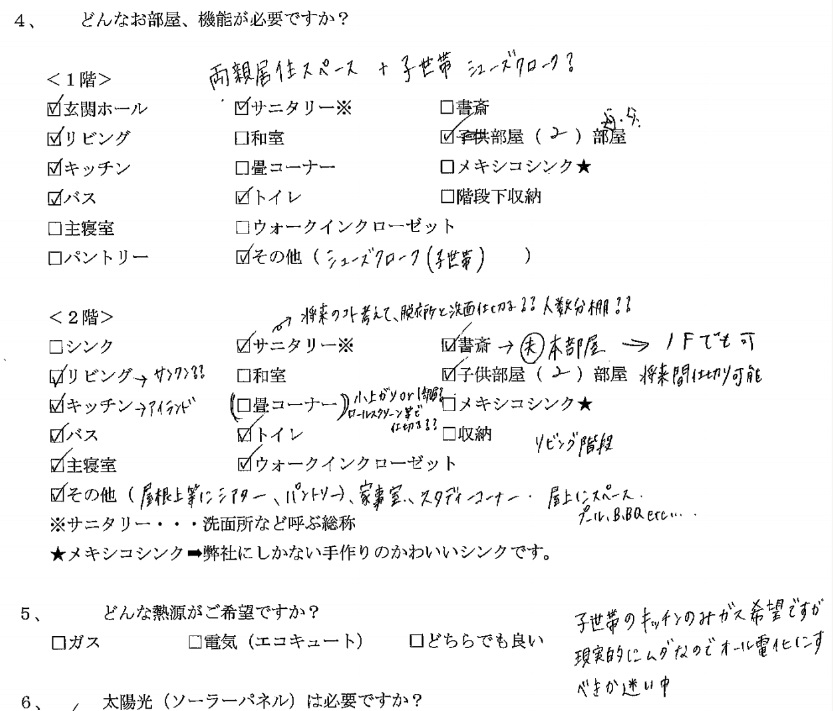 4、 どんなお部屋、機能が必要ですか？
＜1階＞ 両親居住スペース + 子世帯 シューズクローク？
☑玄関ホール ☑サニタリー※ □書斎
☑リビング □和室 ☑子供部屋（2）部屋
☑キッチン □畳コーナー □メキシコシンク★
☑バス ☑トイレ □階段下収納
□主寝室 □ウォークインクローゼット
□パントリー ☑その他（シューズクローク(子世帯) ）
＜2階＞ → 将来のコト考えて、脱衣所と洗面仕切る?? 人数分棚??
□シンク ☑サニタリー※ ☑書斎→(夫)本部屋 → 1Fでも可
☑リビング→サンクン?? □和室 ☑子供部屋（2）部屋 将来間仕切り可能
☑キッチン→アイランド (□畳コーナー) 小上がりor □メキシコシンク★
ロールスクリーン等で
仕切る??
☑バス ☑トイレ □収納 リビング階段
☑主寝室 ☑ウォークインクローゼット
☑その他（屋根上等にシアター、パントリー)、家事室、スタディーコーナー・ 屋上にスペース.
プール、B.B.Q etc...
※サニタリー・・・洗面所など呼ぶ総称
★メキシコシンク➡弊社にしかない手作りのかわいいシンクです。
5、 どんな熱源がご希望ですか？
□ガス □電気（エコキュート） □どちらでも良い
子世帯のキッチンのみガス希望ですが
現実的にムダなのでオール電化にす
べきか迷い中
6、 太陽光（ソーラーパネル）は必要ですか？